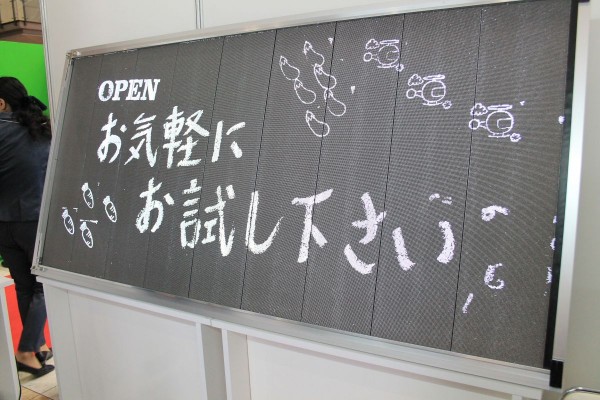 OPEN
お気軽に
お試し下さい。